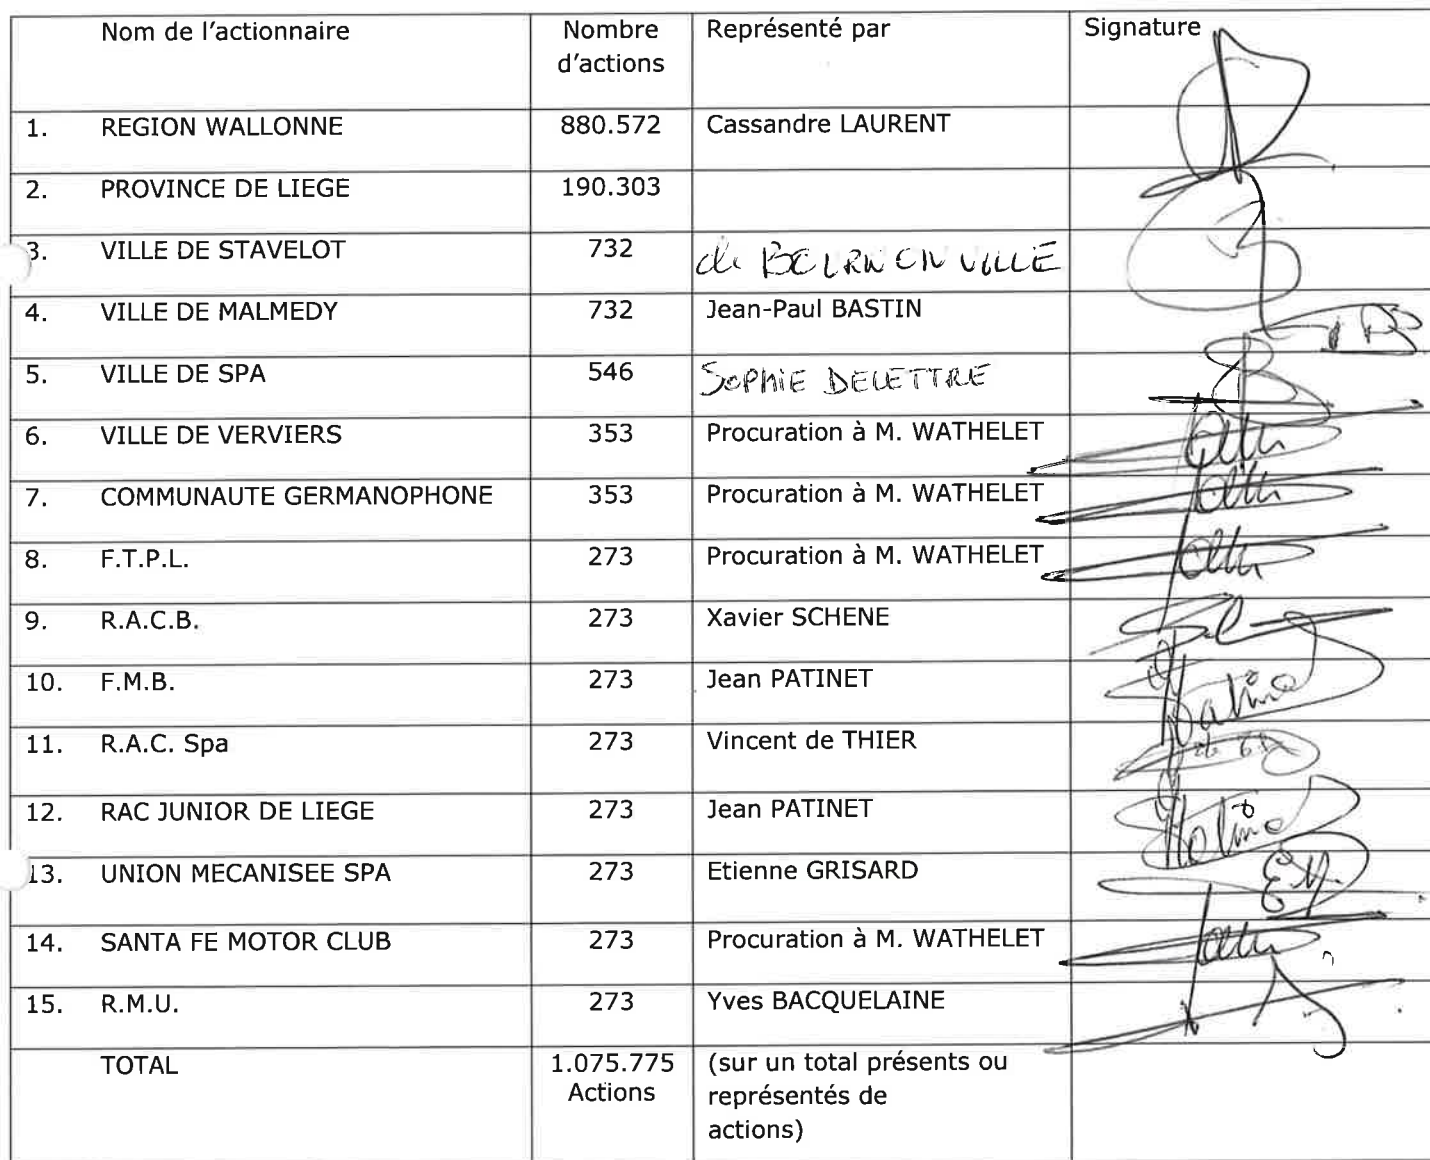 Nom de l'actionnaire Nombre Représenté par Signature
d'actions
1. REGION WALLONNE 880.572 Cassandre LAURENT
2. PROVINCE DE LIEGE 190.303
3. VILLE DE STAVELOT 732 de
4. VILLE DE MALMEDY 732 Jean-Paul BASTIN
5. VILLE DE SPA 546 SOPHIE DELETTRE
6. VILLE DE VERVIERS 353 Procuration à M. WATHELET
7. COMMUNAUTE GERMANOPHONE 353 Procuration à M. WATHELET
8. F.T.P.L. 273 Procuration à M. WATHELET
9. R.A.C.B. 273 Xavier SCHENE
10. F.M.B. 273 Jean PATINET
11. R.A.C. Spa 273 Vincent de THIER
12. RAC JUNIOR DE LIEGE 273 Jean PATINET
13. UNION MECANISEE SPA 273 Etienne GRISARD
14. SANTA FE MOTOR CLUB 273 Procuration à M. WATHELET
15. R.M.U. 273 Yves BACQUELAINE
TOTAL 1.075.775 (sur un total présents ou
Actions représentés de
actions)